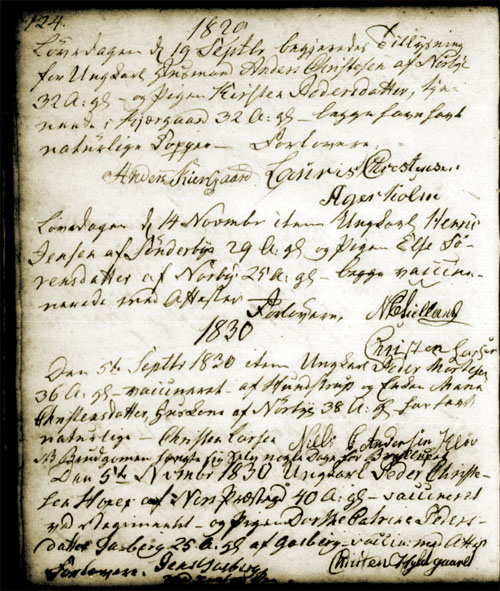 124.
1829
Løverdagen d. 19 Septbr begjeredes Tillysning
for Ungkarl Huusmand Anders Christesen af Nørbye
32 A: gl - og Pigen Kirsten Pedersdatter, tje-
nende i Kjærgaard 32 A: gl - begge have havt
naturlige Kopper - Forlovere.
Anders Kiergaard Lauris Chrestensen
Agerholm
Løverdagen d. 14 Novembr item Ungkarl Henric
Jensen af Sønderbye 29 A: gl og Pigen Else Sø-
rensdatter af Nørbye 25 A: gl - begge vaccine-
nerede med Attester Forlovere,
1830
Christen Larsen
Den 5te Septbr 1830 item Ungkarl Peder Mortesen
36 A: gl - vaccineret - af Hundstrup og Enken Maria
Christensdatter, af Nørbye 38 A: gl har havt
naturlige - Christen Larsen Niels C. Andersen Kløv
NB Brudgommen
Den 5te Novmbr 1830 Ungkarl Peder Christe-
sen af 40 A: gl - vaccineret
ved Regimentet - og Pigen Dorthe Catrine Peders-
datter Gasberg 25 A: gl af Gasberg - vaccin: med Attest
Forlovere. Jens Gasberg Christen Hyldgaard